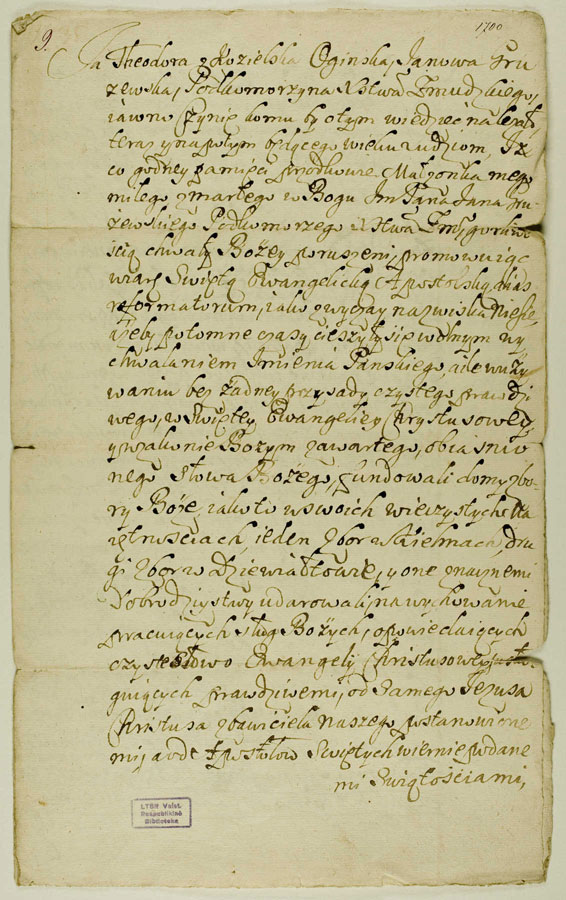 9.
1700
Ja Theodora z Kozielska Oginska, Janowa Gru
zewska, Podkomorzyna Xstwa Zmudzkiego,
iawno czynię komu by o tym wiedzieć należało
teraz y na potym będącego wieku ludziom, Iż
co godney pamięci przodkowie Małżonka mego
miłego zmarłego w Bogu Jm Pana Jana Gru-
żewskiego Podkomorzego Xstwa Zmo, gorliwo
scią chwały Bożey poruszeni, promowuiąc
wiarę Swiętą Ewangelicką Apostolską, alias
reformatorum, iako zwyczay nazwiska niesie,
ażeby potomne czasy cieszyły się wolnym wy
chwalaniem Imienia Panskiego, a ile w uży
waniu bez żadney przysady czystego prawdzi
wego, w Swiętey Ewangeliey Chrystusowey,
y w zakonie Bożym zawartego, obiasnio
nego Słowa Bożego, fundowali domy zbo-
ry Boże, iako to w swoich wieczystych Ma
iętnościach, ieden Zbor w Kielmach, dru
gi Zbor w Dziewiałtowie, y one znacznemi
Dobrodzystwy udarowali, na wychowanie
pracuiących sług Bożych, opowiedaiących
czyste słowo Ewangelij Christusowey,
guiących prawdziwemi, od Samego Jezusa
Christusa zbawiciela naszego postanowione
mi, a od Apostołow Swiętych wiernie podane
mi Swiątościami,
LTSR Valst.
Respublikinė
Biblioteka